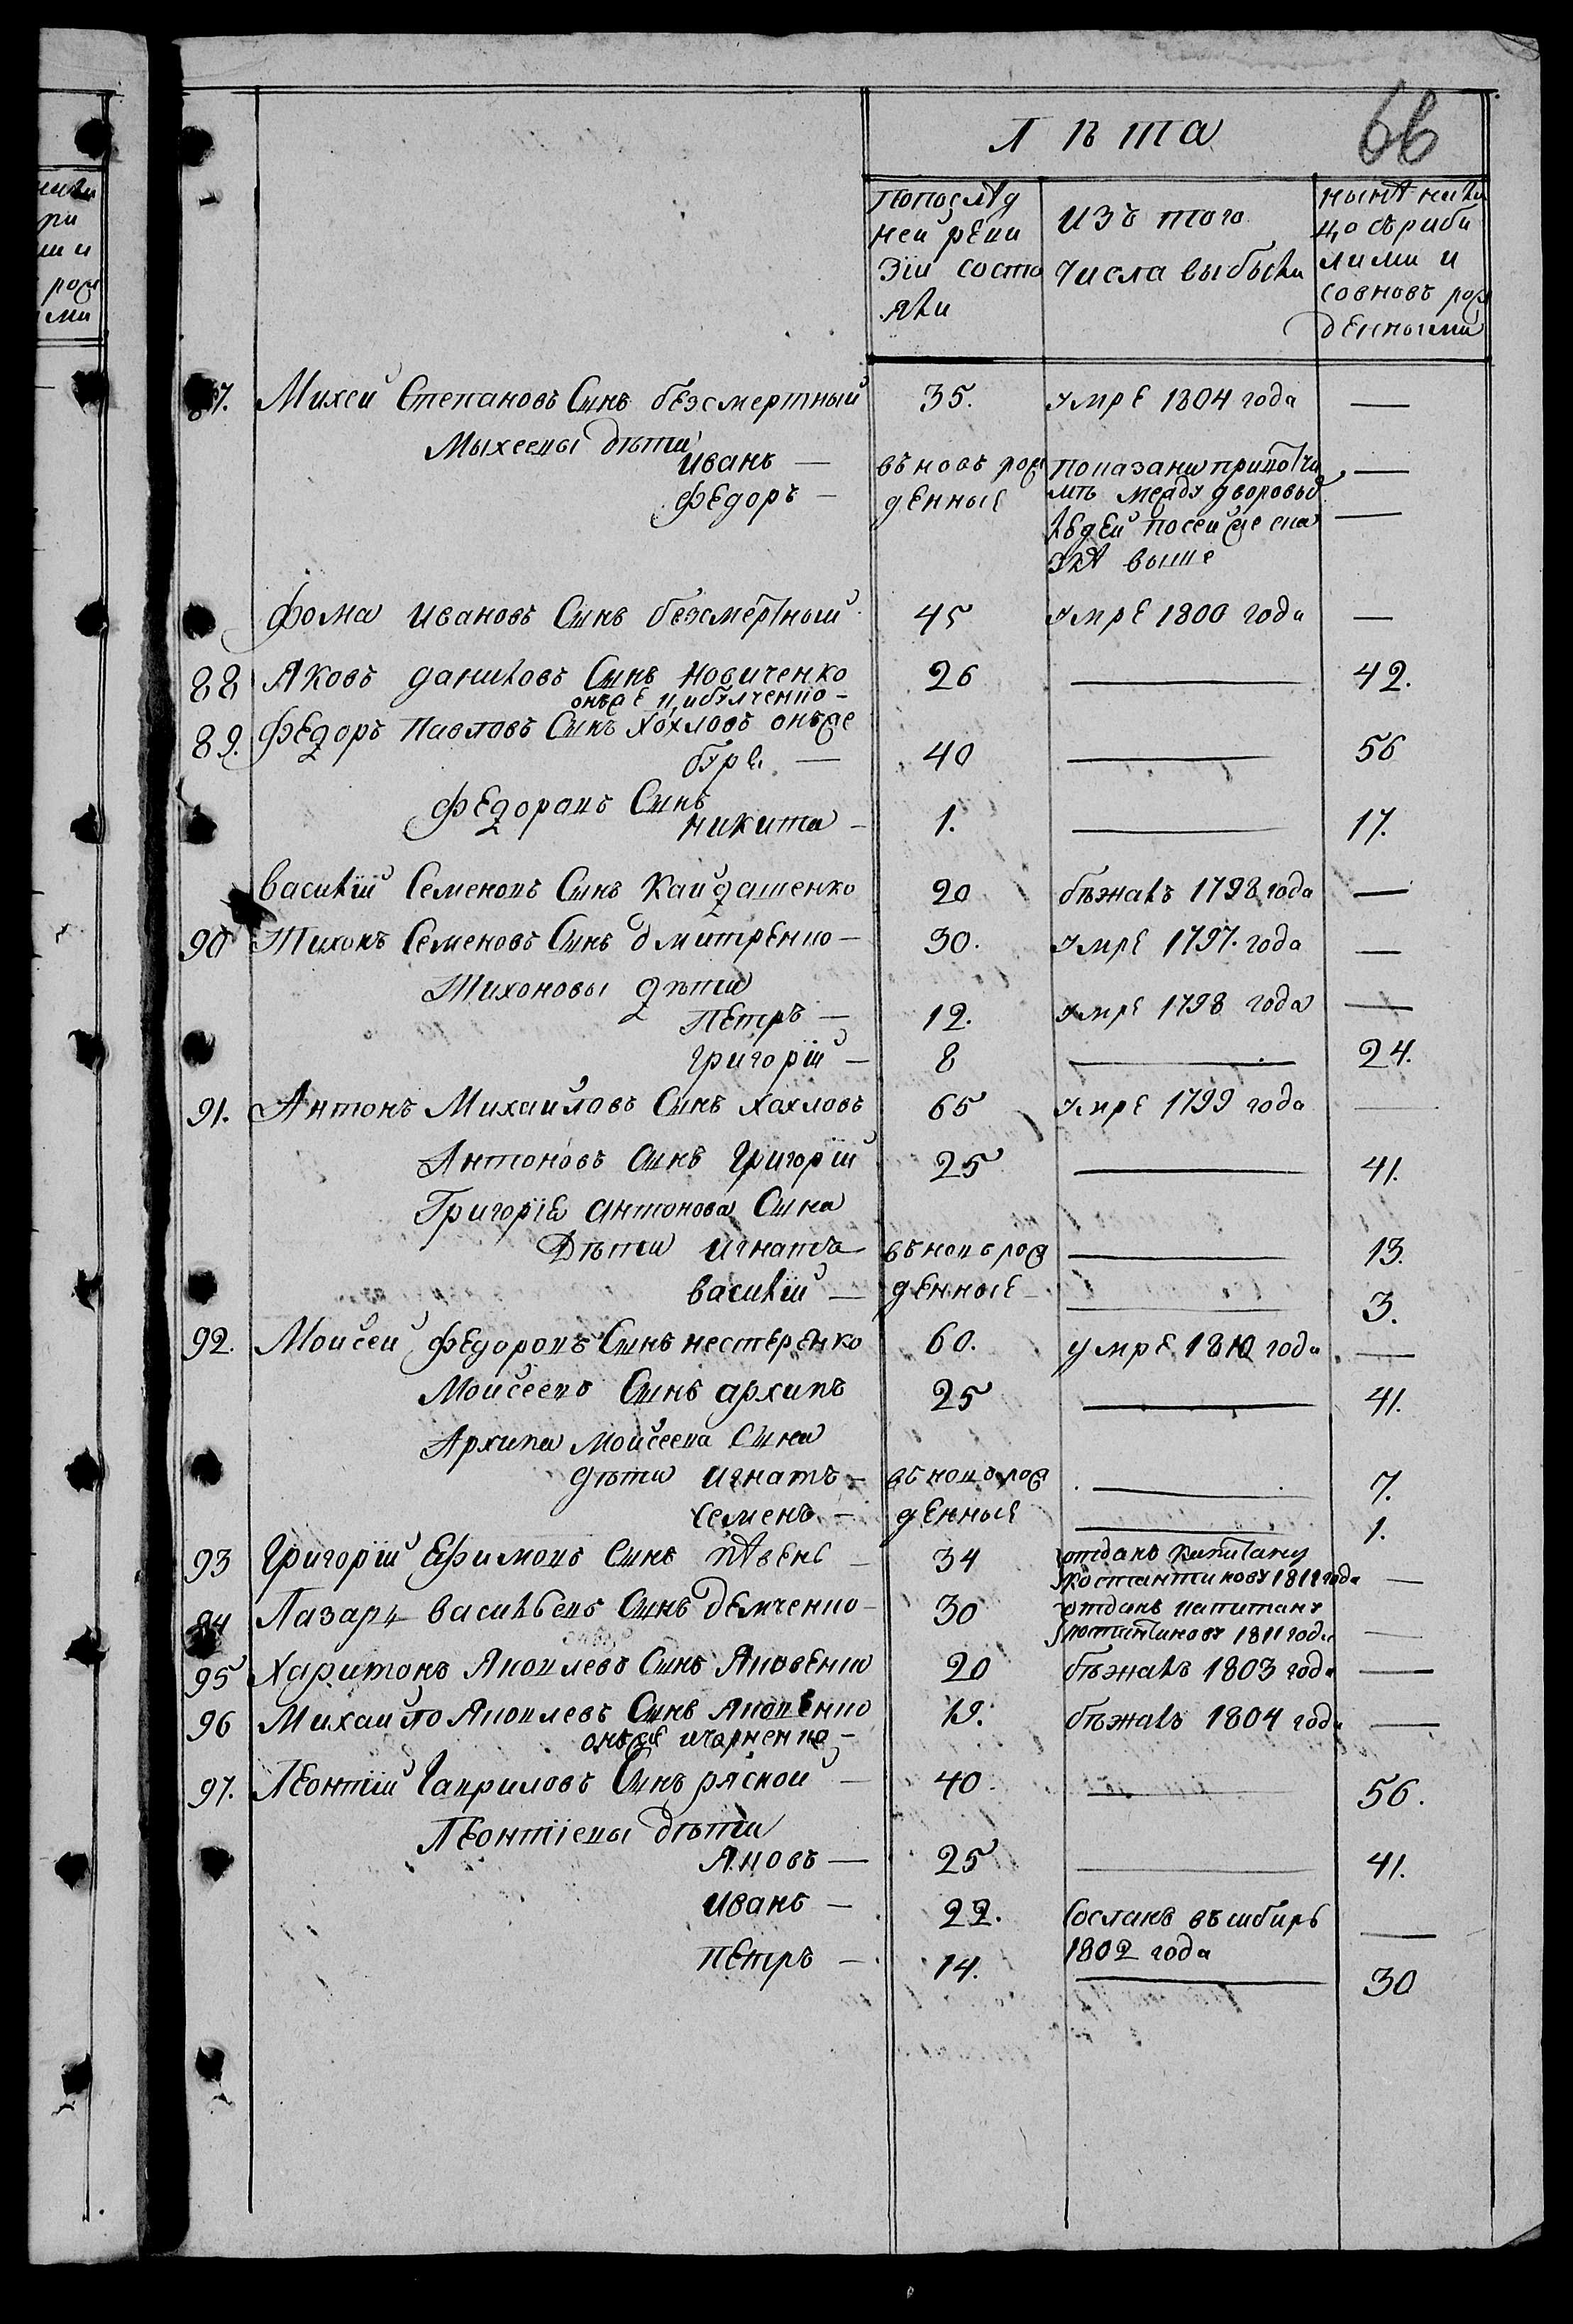 66
Лѣта
попослѣд
ней реви
зїи состо
яли
изъ того
числа выбыли
нынѣ нали
цо съ риби
лими и
совновь рож
денными
87. Михей Степановъ Сынъ безсмертный 35. умре 1804 года —
Михеевы дѣти
иванъ — въновь рож показаны —
федоръ — денные между дворовых —
людей
выше
фома ивановъ Сынъ безсмертный 45 умре 1800 года —
88 Яковъ даниловъ Сынъ новиченко 26 — 42.
онъже
89. федоръ Павловъ Сынъ хохловъ онъже
— 40 — 56
федоровъ Сынъ
никита — 1. — 17.
василїй Семеновъ Сынъ кайдашенко 20 бѣжалъ 1798 года —
90 Тихонъ Семеновъ Сынъ дмитренко — 30. умре 1797. года —
Тихоновы дѣти
Петръ — 12. умре 1798 года —
григорїй — 8 — 24.
91. Антонъ Михайловъ Сынъ хохловъ 65 умре 1799 года —
Антоновъ Сынъ григорїй 25 — 41.
Григорїя антонова Сына
Дѣти игнатъ въновь рож — 13.
василїй — денные — 3.
92. Моисей федоровъ Сынъ нестеренко 60. умре 1810 года —
Моисеевъ Сынъ архипъ 25 — 41.
Архипа Моисеева Сына
дѣти игнатъ — въновь рож — 7.
семенъ — денные — 1.
93 григорїй ефимовъ Сынъ — 34 отданъ капитану
костантинову 1811 года —
94 Лазарь васильевъ Сынъ демченко — 30 отданъ капитану
костантинову 1811 года —
95 Харитонъ Яковлевъ Сынъ Яковенко 20 бѣжалъ 1803 года —
96 Михайло Яковлевъ Сынъ яковенко 19. бѣжалъ 1804 года —
онъже ичорненко —
97. Леонтїй гавриловъ Сынъ рясной — 40. — 56.
Леонтїевы дѣти
Яковъ — 25 — 41.
иванъ — 22. Сосланъ въ сибирь —
1802 года
петръ — 14. — 30